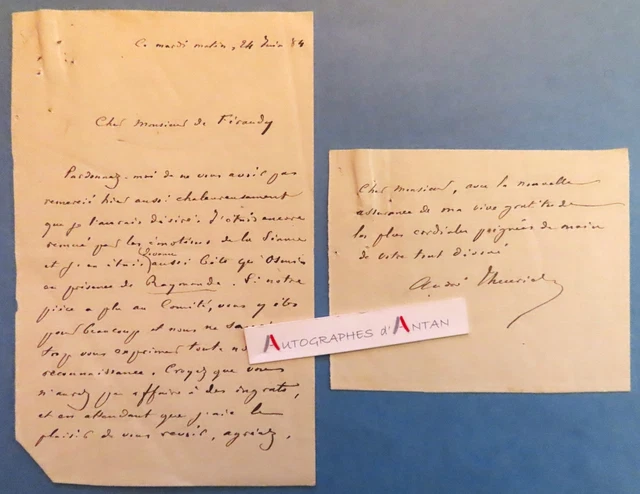 Ce mardi matin, 24 Juin 84
Cher Monsieur de Féraudy
Pardonnez-moi de ne vous avoir pas
remercié hier aussi chaleureusement
que je l'aurais désiré. J'étais encore
remué par les émotions de la séance
et j'en étais devenu aussi bête qu'Osmin
en présence de Raymonde. Si notre
pièce a plu au Comité, vous y êtes
pour beaucoup et nous ne
trop vous exprimer toute
reconnaissance. Croyez que vous
n'aurez pas affaire à des ingrats,
et en attendant que j'aie le
plaisir de vous revoir, agréez,
Cher Monsieur, avec la nouvelle
assurance de ma vive gratitude
les plus cordiales poignées de main
de votre tout dévoué
André Theuriet
AUTOGRAPHES d'ANTAN